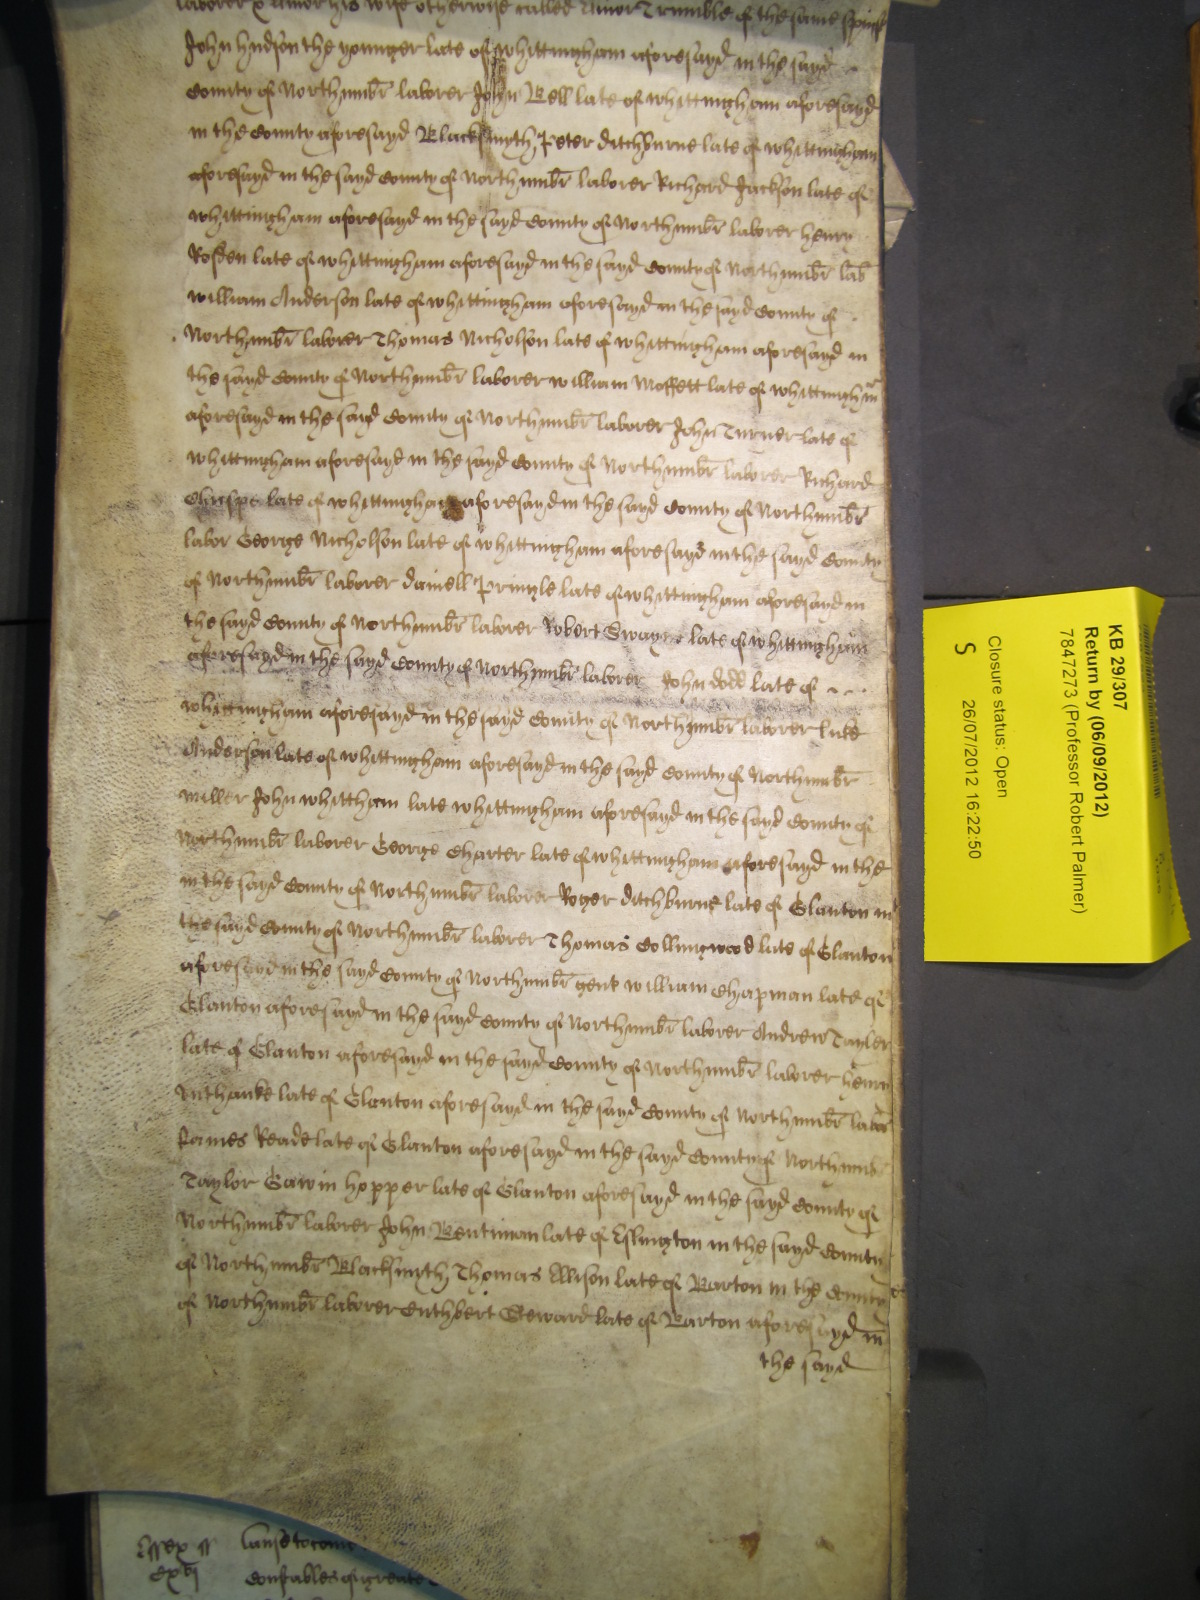 laborer & Ainor his wife otherwise called Ainor Trumble of the same spinst
John Hudson the younger late of Whittingham aforesayd in the sayd
County of Northumbr laborer John Bell late of Whittingham aforesayd
in the County aforesayd Blacksmyth Peter Ditchburne late of Whittingham
aforesayd in the sayd County of Northumbr laborer Richard Jackson late of
Whittingham aforesayd in the sayd County of Northumbr laborer Henry
Rosden late of Whittingham aforesayd in the sayd County of Northumbr lab
William Anderson late of Whittingham aforesayd in the sayd County of
Northumbr laborer Thomas Nicholson late of Whittingham aforesayd in
the sayd County of Northumbr laborer William Moffett late of Whittinghm
aforesayd in the sayd County of Northumbr laborer John Turner late of
Whittingham aforesayd in the sayd County of Northumbr laborer Richard
late of Whittingham aforesayd in the sayd County of Northumbr
labor George Nicholson late of Whittingham aforesayd in the sayd County
of Northumbr laborer Daniell Pringle late of Whittingham aforesayd in
the sayd County of Northumbr laborer Robert Swayne late of Whittingham
aforesayd in the sayd County of Northumbr laborer John Dodd late of
Whittingham aforesayd in the sayd County of Northumbr laborer Luke
Anderson late of Whittingham aforesayd in the sayd County of Northumbr
Miller John Whitham late Whittingham aforesayd in the sayd County of
Northumbr laborer George Charter late of Whittingham aforesayd in the
in the sayd County of Northumbr laborer Roger Ditchburne late of Glanton in
the sayd County of Northumbr laborer Thomas Collingwood late of Glanton
aforesayd in the sayd County of Northumbr gent William Chapman late of
Glanton aforesayd in the sayd County of Northumbr laborer Andrew Tayler
late of Glanton aforesayd in the sayd County of Northumbr laborer Henry
Unthanke late of Glanton aforesayd in the sayd County of Northumbr labor
James Reade late of Glanton aforesayd in the sayd County of Northumbr
Taylor Gawin Hopper late of Glanton aforesayd in the sayd County of
Northumbr laborer John Bentiman late of Eslington in the sayd County
of Northumbr Blacksmith Thomas Allison late of Barton in the County
of Northumbr laborer Cuthbert Steward late of Barton aforesayd in
the sayd
Essex ss
constables of greate
KB 29/307
Return by (06/09/2012)
7847273 (Professor Robert Palmer)
Closure status: Open
S 26/07/2012 16:22:50